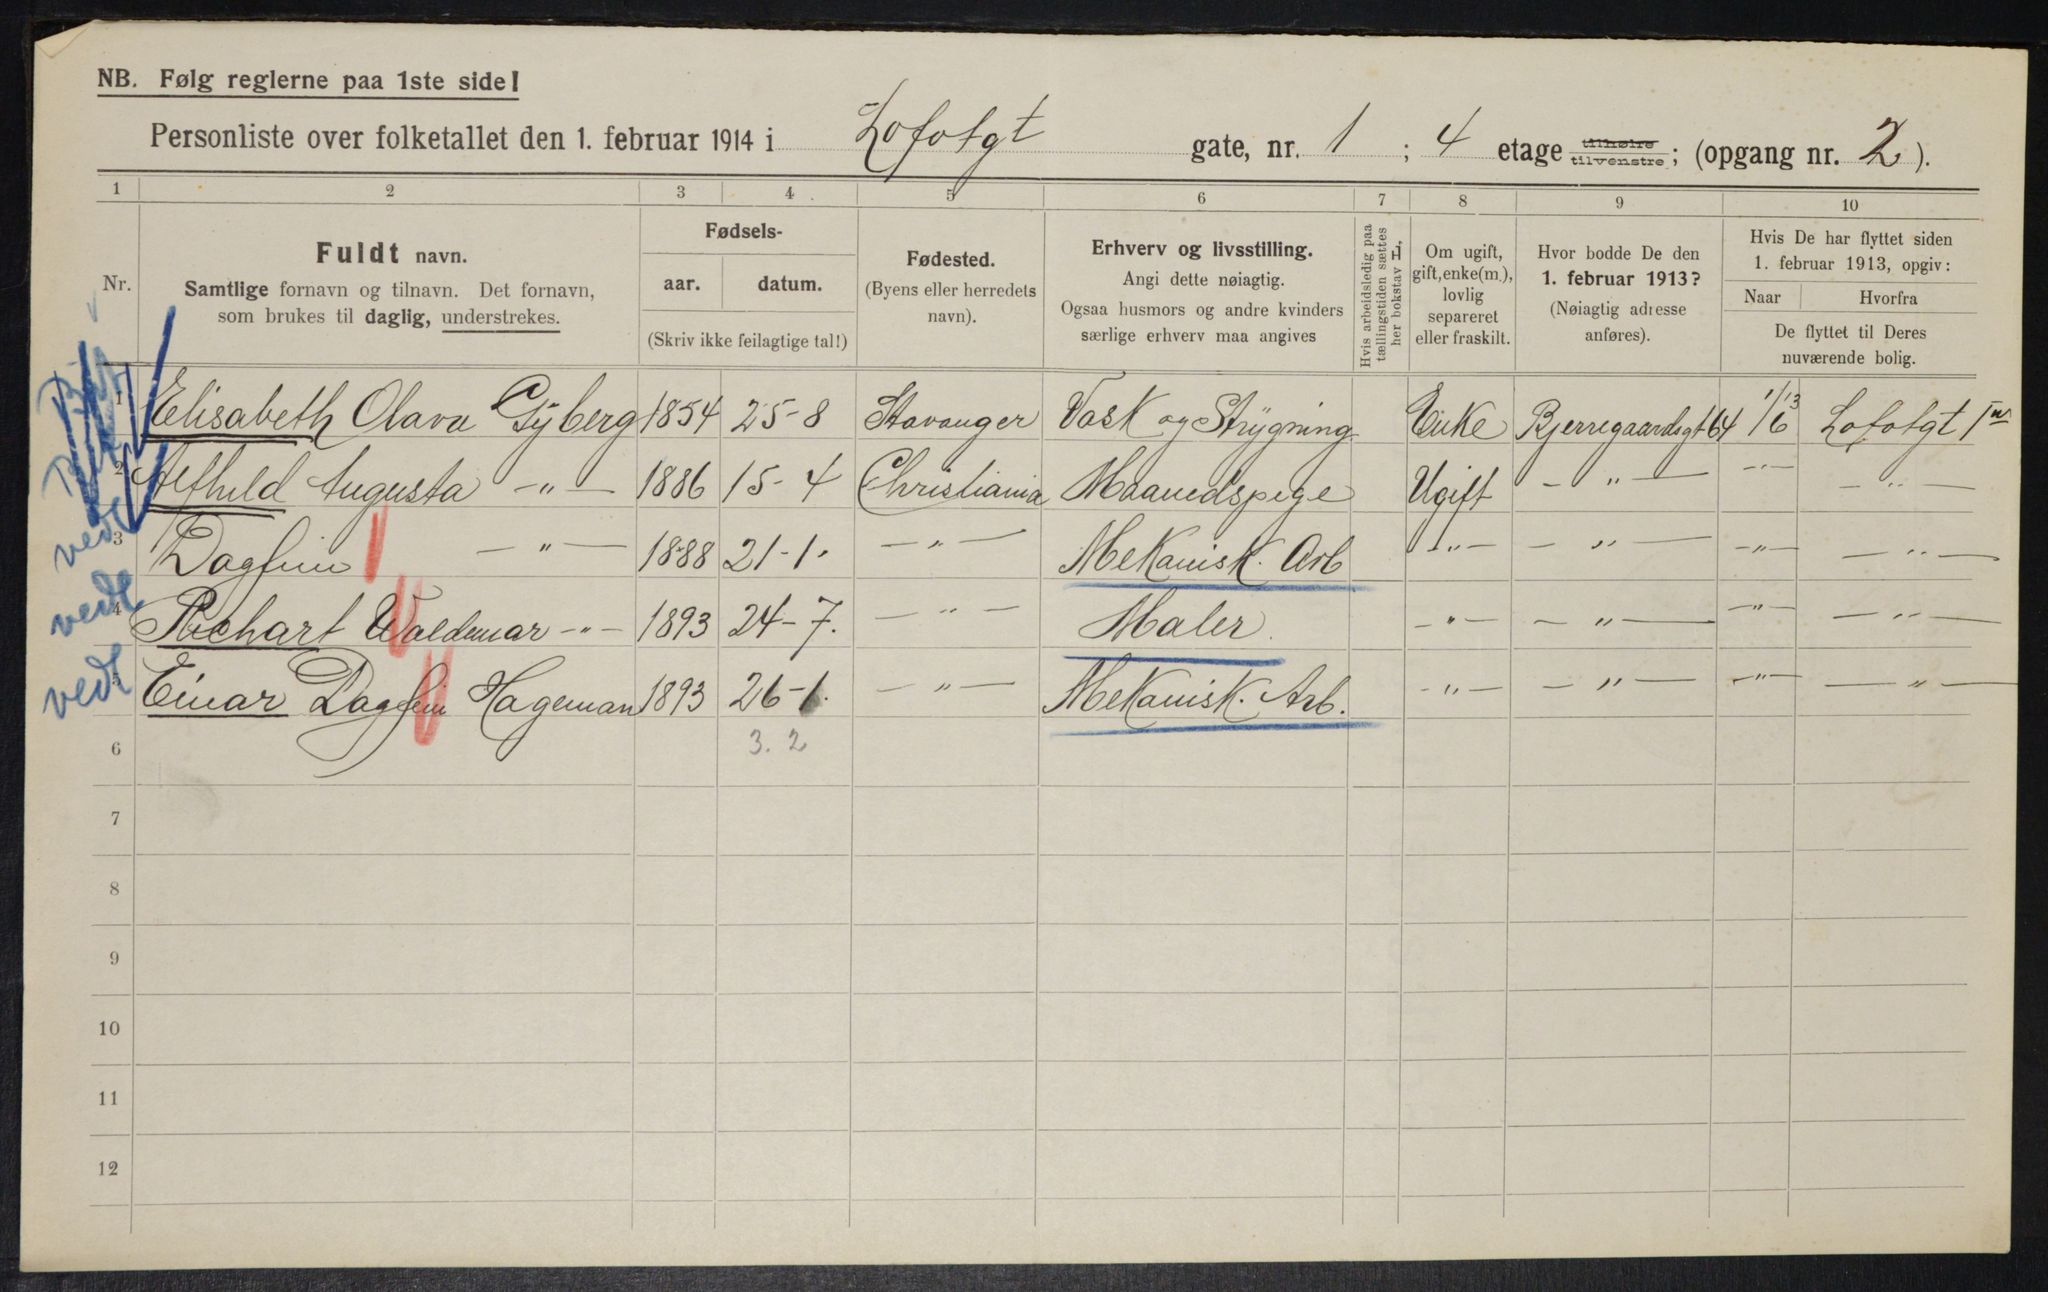 NB. Følg reglerne paa 1ste side!
Personliste over folketallet den 1. februar 1914 i Lofotgt gate, nr. 1 ; 4 etage tilhøire tilvenstre ; (opgang nr. 2 ).
1 2 3 4 5 6 7 8 9 10
Nr.
Fuldt navn.
Samtlige fornavn og tilnavn. Det fornavn,
som brukes til daglig, understrekes.
Fødsels-
aar. datum.
(Skriv ikke feilagtige tal!)
Fødested.
(Byens eller herredets
navn).
Erhverv og livsstilling.
Angi dette nøiagtig.
Ogsaa husmors og andre kvinders
særlige erhverv maa angives
Hvis arbeidsledig paa
tællingstiden sættes
her bokstav L.
Om ugift,
gift, enke(m.),
lovlig
separeret
eller fraskilt.
Hvor bodde De den
1. februar 1913?
(Nøiagtig adresse
anføres).
Hvis De har flyttet siden
1. februar 1913, opgiv:
Naar Hvorfra
De flyttet til Deres
nuværende bolig.
1 Elisabeth Olava Gyberg 1854 25-8 Stavanger Vask og Strygning Enke Bjerregaardsgt 64 1/6 13 Lofotgt 1
2 Alfhild Augusta -"- 1886 15-4 Christiania Maanedspige Ugift -"- -"- -"-
3 Dagfinn -"- 1888 21-1. -"- Mekanisk. Arb -"- -"- -"- -"-
vedt
4 Richart Waldemar -"- 1893 24-7. -"- Maler. -"- -"- -"- -"-
vedt
5 Einar Dagfinn Hageman 1893 26-1. -"- Mekanisk. Arb. -"- -"- -"- -"-
vedt
6 3. 2
7
8
9
10
11
12